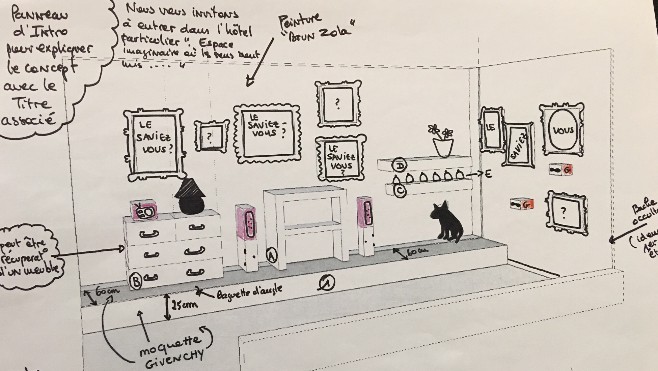 Panneau
d'Intro
pour expliquer
le concept
avec le
Titre
associé
Nous vous invitons
à entrer dans l'hôtel
particulier". Espace
imaginaire où les sens sont
mis .... "
Peinture
"Brun Zola"
LE
SAVIEZ
VOUS?
?
LE
SAVIEZ-
VOUS?
?
LE
SAVIEZ
VOUS?
LE
SAVIEZ
VOUS
?
D
C
E
peut être
récupération
d'un meuble
A
B
60cm
60cm
Baguette d'angle
1
25cm
moquette
GIVENCHY